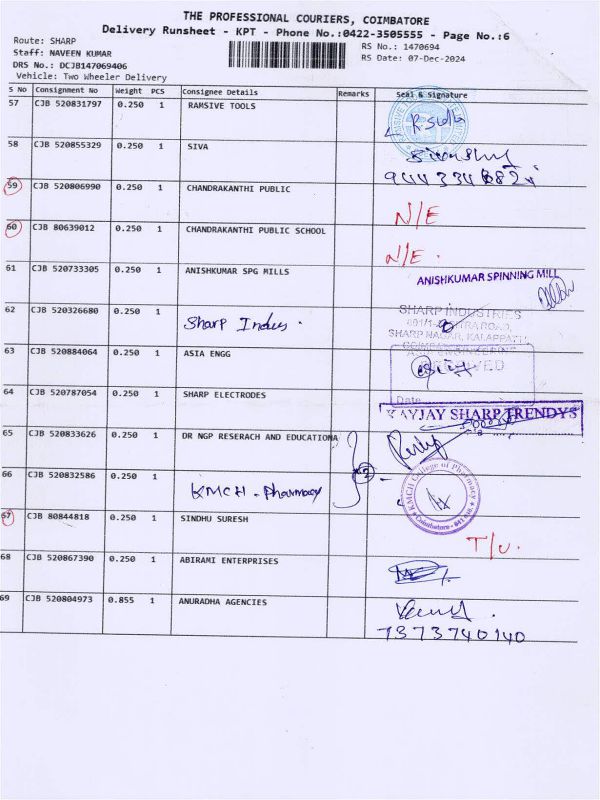 THE PROFESSIONAL COURIERS, COIMBATORE
Delivery Runsheet - KPT - Phone No.:0422-3505555 - Page No.:6
Route: SHARP
Staff: NAVEEN KUMAR
DRS No.: DCJB147069406
Vehicle: Two Wheeler Delivery
RS No.: 1470694
RS Date: 07-Dec-2024
S No Consignment No Weight PCS Consignee Details Remarks Seal & Signature
57 CJB 520831797 0.250 1 RAMSIVE TOOLS
58 CJB 520855329 0.250 1 SIVA
59 CJB 520806990 0.250 1 CHANDRAKANTHI PUBLIC N/E
60 CJB 80639012 0.250 1 CHANDRAKANTHI PUBLIC SCHOOL N/E.
61 CJB 520733305 0.250 1 ANISHKUMAR SPG MILLS ANISHKUMAR SPINNING MILL
62 CJB 520326680 0.250 1 Sharp Indus. SHARP INDUSTRIES
SHARP NAGAR, KALAPPATTI
63 CJB 520884064 0.250 1 ASIA ENGG
Date
64 CJB 520787054 0.250 1 SHARP ELECTRODES KAYJAY SHARP TRENDYS
65 CJB 520833626 0.250 1 DR NGP RESERACH AND EDUCATIONA
66 CJB 520832586 0.250 1 KMCH - Pharmacy 2 KMCH College of Pharmacy
67 CJB 80844818 0.250 1 SINDHU SURESH T/U.
68 CJB 520867390 0.250 1 ABIRAMI ENTERPRISES
69 CJB 520804973 0.855 1 ANURADHA AGENCIES
7373740140